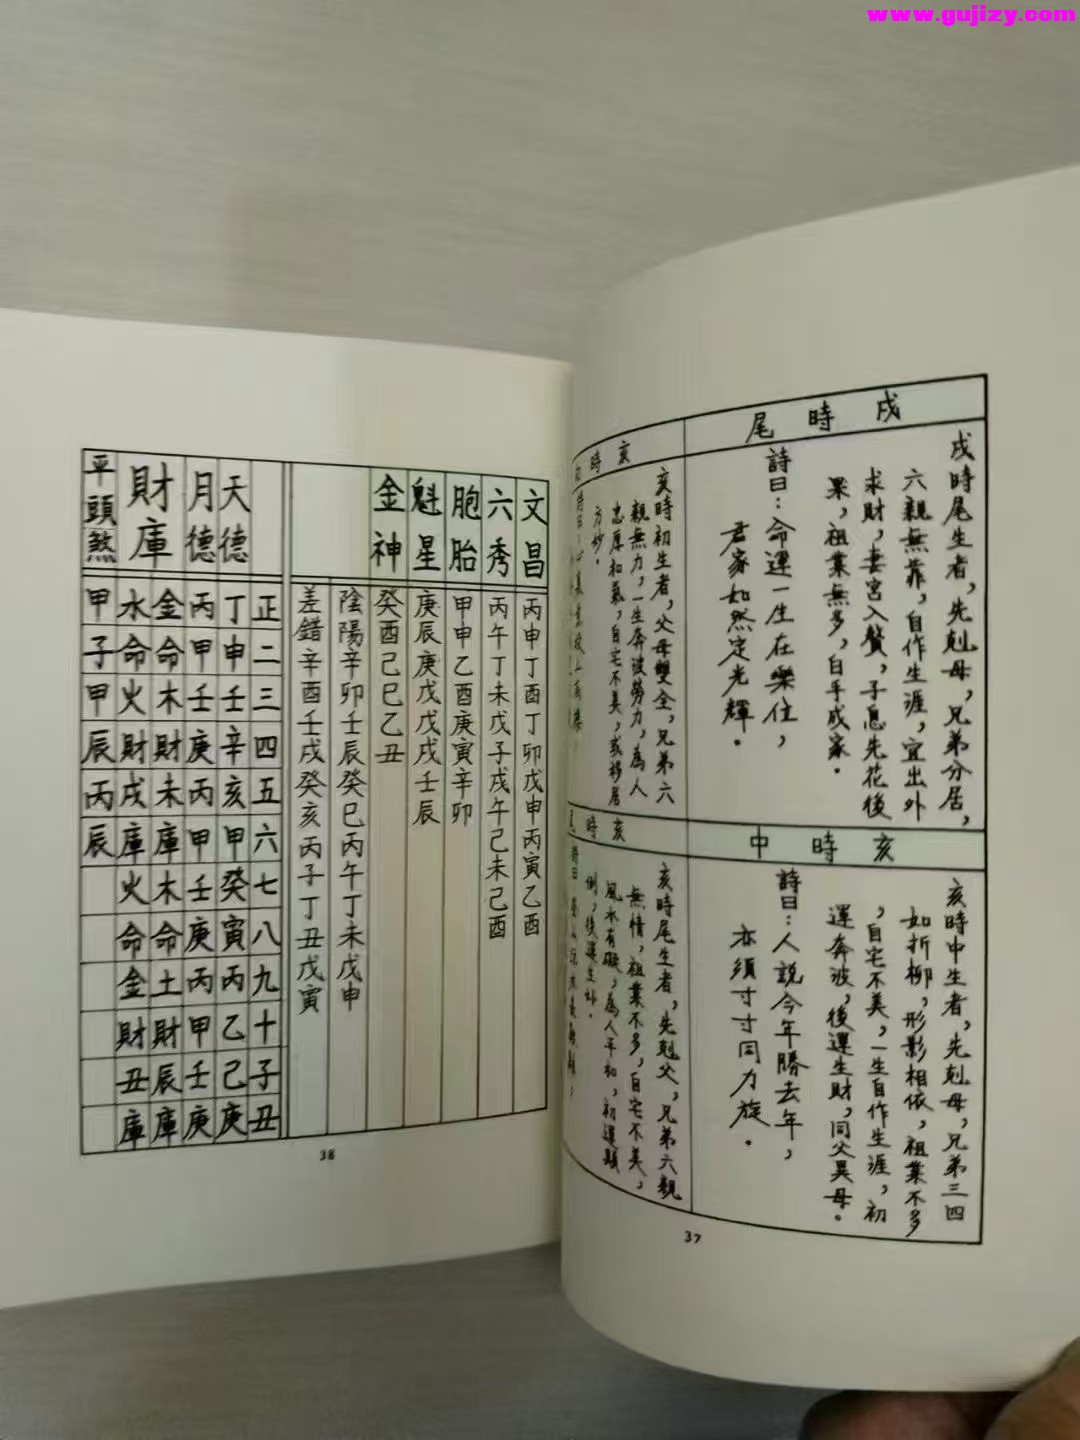 www.gujizy.com
戌時尾
戌時尾生者，先剋母，兄弟分居，
六親無靠，自作生涯，宜出外
求財，妻宮入贅，子息先花後
果，祖業無多，白手成家．
詩曰：命運一生在樂住，
君家如然定光輝．
亥時中
亥時中生者，先剋母，兄弟三四
如折柳，形影相依，祖業不多
，自宅不美，一生自作生涯，初
運奔波，後運生財，同父異母。
詩曰：人説今年勝去年，
亦須寸寸同力旋．
亥時初
亥時初生者，父母雙全，兄弟六
親無力，一生奔波勞力，為人
忠厚和氣，自宅不美，或移居
方妙．
亥時
亥時尾生者，先剋父，兄弟六親
無情，祖業不多，自宅不美，
風水有礙，為人平和，初運顛
倒，後運生財．
詩曰
37
文昌
丙申丁酉丁卯戊申丙寅乙酉
六秀
丙午丁未戊子戊午己未己酉
胞胎
甲申乙酉庚寅辛卯
魁星
庚辰庚戌戊戌壬辰
金神
癸酉己巳乙丑
陰陽辛卯壬辰癸巳丙午丁未戊申
差錯辛酉壬戌癸亥丙子丁丑戊寅
正二三四五六七八九十子丑
天德
丁申壬辛亥甲癸寅丙乙己庚
月德
丙甲壬庚丙甲壬庚丙甲壬庚
財庫
金命木財未庫木命土財辰庫
水命火財戌庫火命金財丑庫
平頭煞
甲子甲辰丙辰
38